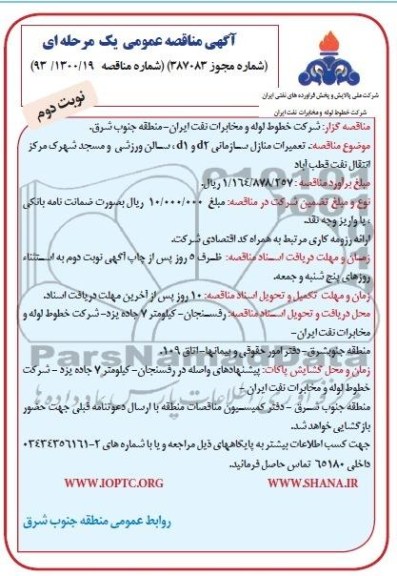 آگهی مناقصه عمومی یک مرحله ای
(شماره مجوز ۳۸۷۰۸۳) (شماره مناقصه ۹۳/۱۳۰۰/۱۹)
نوبت دوم
شرکت ملی پالایش و پخش فرآورده های نفتی ایران
شرکت خطوط لوله و مخابرات نفت ایران
مناقصه گزار: شرکت خطوط لوله و مخابرات نفت ایران-منطقه جنوب شرق.
موضوع مناقصه: تعمیرات منازل سازمانی d2 و d1، سالن ورزشی و مسجد شهرک مرکز
انتقال نفت قطب آباد
مبلغ برآورد مناقصه: ۱/۱۶۴/۸۷۸/۲۵۷ ریال.
نوع و مبلغ تضمین شرکت در مناقصه: مبلغ ۱۰/۰۰۰/۰۰۰ ریال بصورت ضمانت نامه بانکی
، یا واریز وجه نقد.
ارائه رزومه کاری مرتبط به همراه کد اقتصادی شرکت.
زمان و مهلت دریافت اسناد مناقصه: ظرف ۵ روز پس از چاپ آگهی نوبت دوم به استثناء
روزهای پنج شنبه و جمعه.
زمان و مهلت تکمیل و تحویل اسناد مناقصه: ۱۰ روز پس از آخرین مهلت دریافت اسناد.
محل دریافت و تحویل اسناد مناقصه: رفسنجان- کیلومتر ۷ جاده یزد- شرکت خطوط لوله و
مخابرات نفت ایران-
منطقه جنوبشرق-دفتر امور حقوقی و پیمانها-اتاق ۱۰۹.
زمان و محل گشایش پاکات: پیشنهادهای واصله در رفسنجان- کیلومتر ۷ جاده یزد- شرکت
خطوط لوله و مخابرات نفت ایران-
منطقه جنوب شرق - دفتر کمیسیون مناقصات منطقه با ارسال دعوتنامه قبلی جهت حضور
بازگشایی خواهد شد.
جهت کسب اطلاعات بیشتر به پایگاههای ذیل مراجعه و یا با شماره های ۲-۰۳۴۳۴۳۵۶۱۶۱
داخلی ۶۵۱۸۰ تماس حاصل فرمائید.
WWW.IOPTC.ORG WWW.SHANA.IR
روابط عمومی منطقه جنوب شرق
ParsNamadData